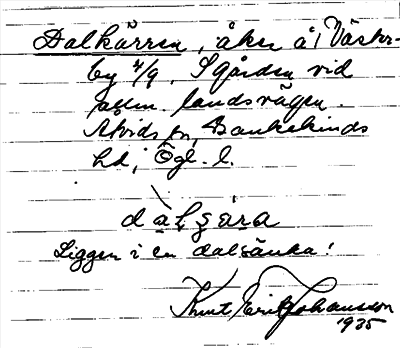 Dalkärren, åker å Väster-
by 4/9, S gården vid
allm. landsvägen.
Åtvids sn, Bankekinds
hd, Ögl. l.
dàlsära
Ligger i en dalsänka!
Knut Erik Johansson
1935